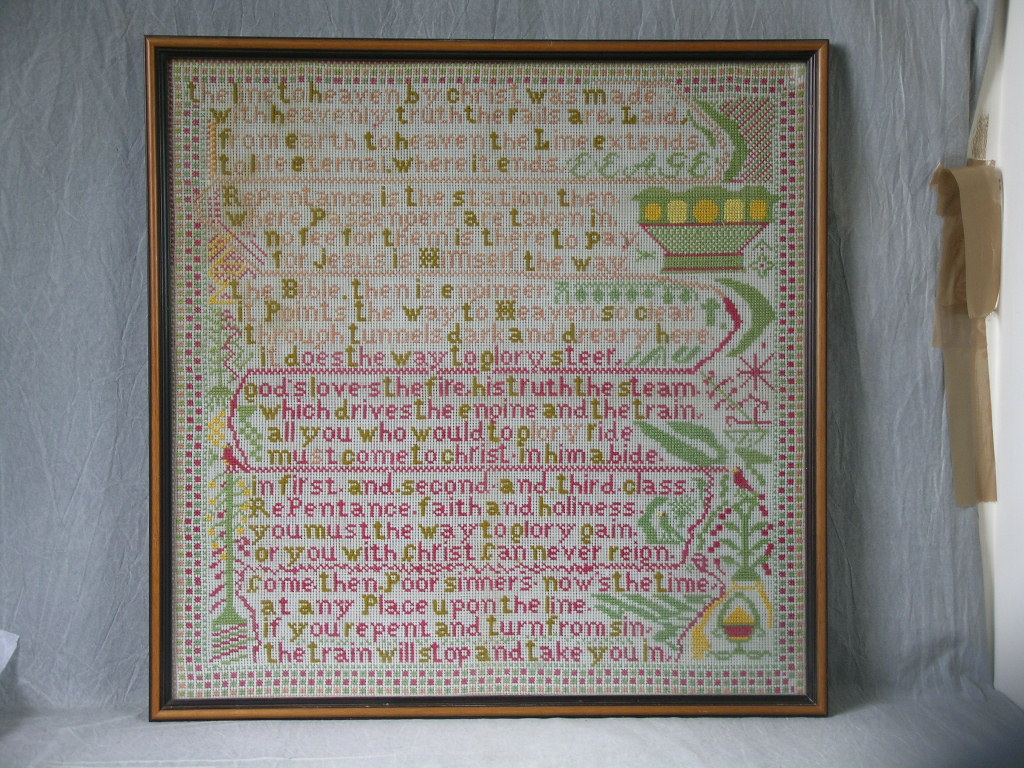 the line to heaven by christ was made
with heavenly truth the rails are Laid,
from earth to heaven the Line extends
to life eternal where it ends.
Repentance is the station then
where Passengers are taken in,
no fee for them is there to pay
for Jesus is Himself the way
the Bible then is engineer
it Points the way to Heaven so clear
through tunnels dark and dreary here
it does the way to glory steer.
god's love is the fire, his truth the steam.
which drives the engine and the train,
all you who would to glory ride
must come to christ. in him abide.
in first. and second. and third class.
RePentance. faith and holiness
you must the way to glory gain.
or you with Christ. Can never reign.
Come then Poor sinners now's the time
at any Place upon the line.
if you repent and turn from sin.
the train will stop and take you in.